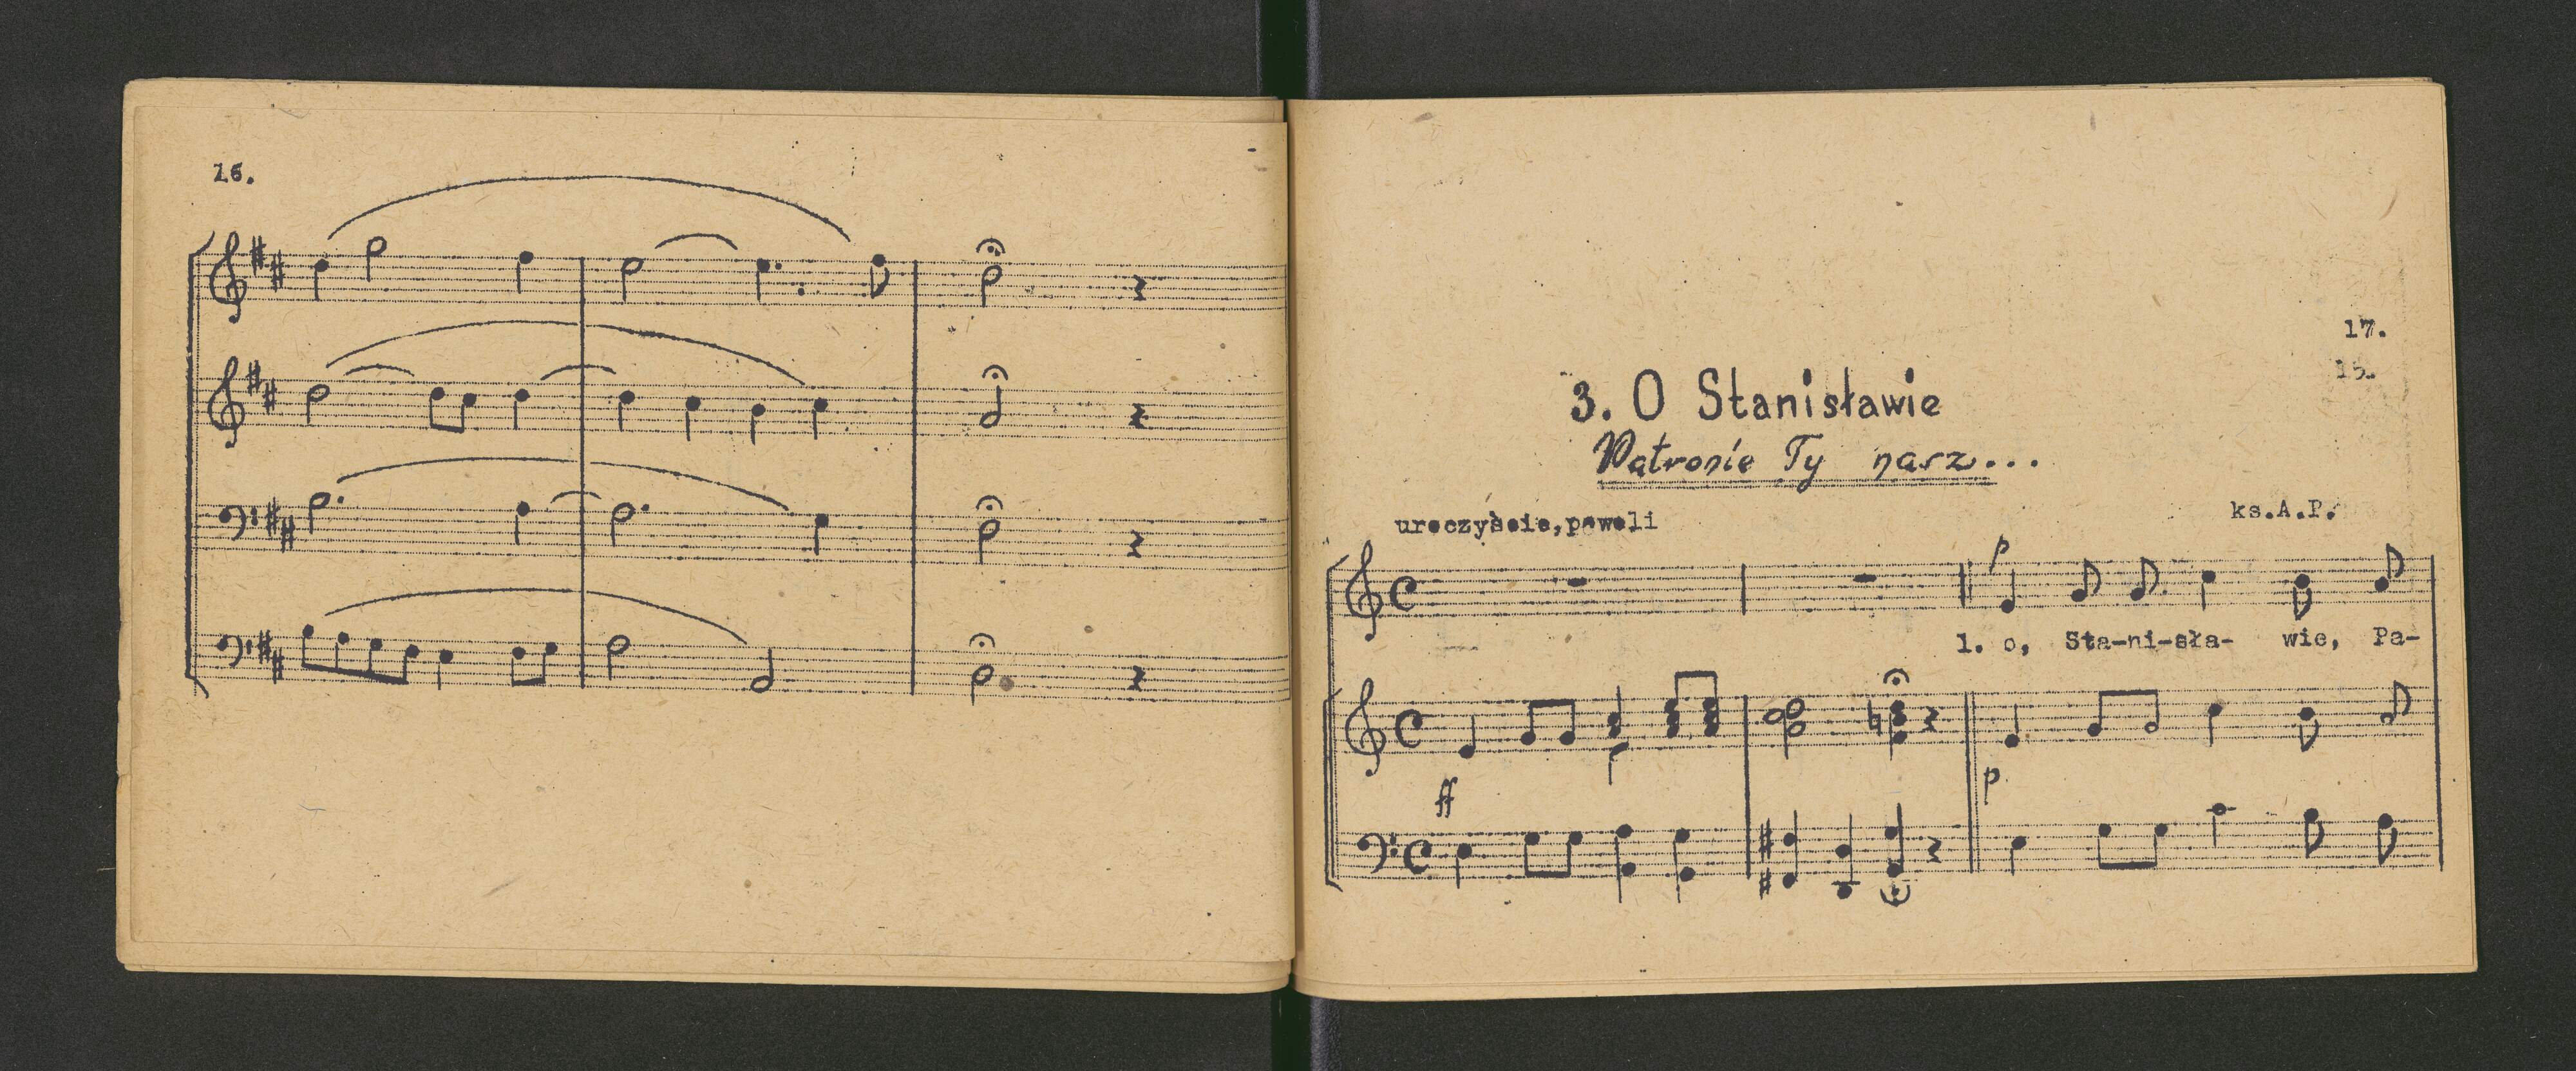 16.
17.
15.
3. O Stanisławie
Patronie Ty nasz...
uroczyście, powoli
ks.A.P.
p
1. o, Sta-ni-sła- wie, Pa-
ff
p